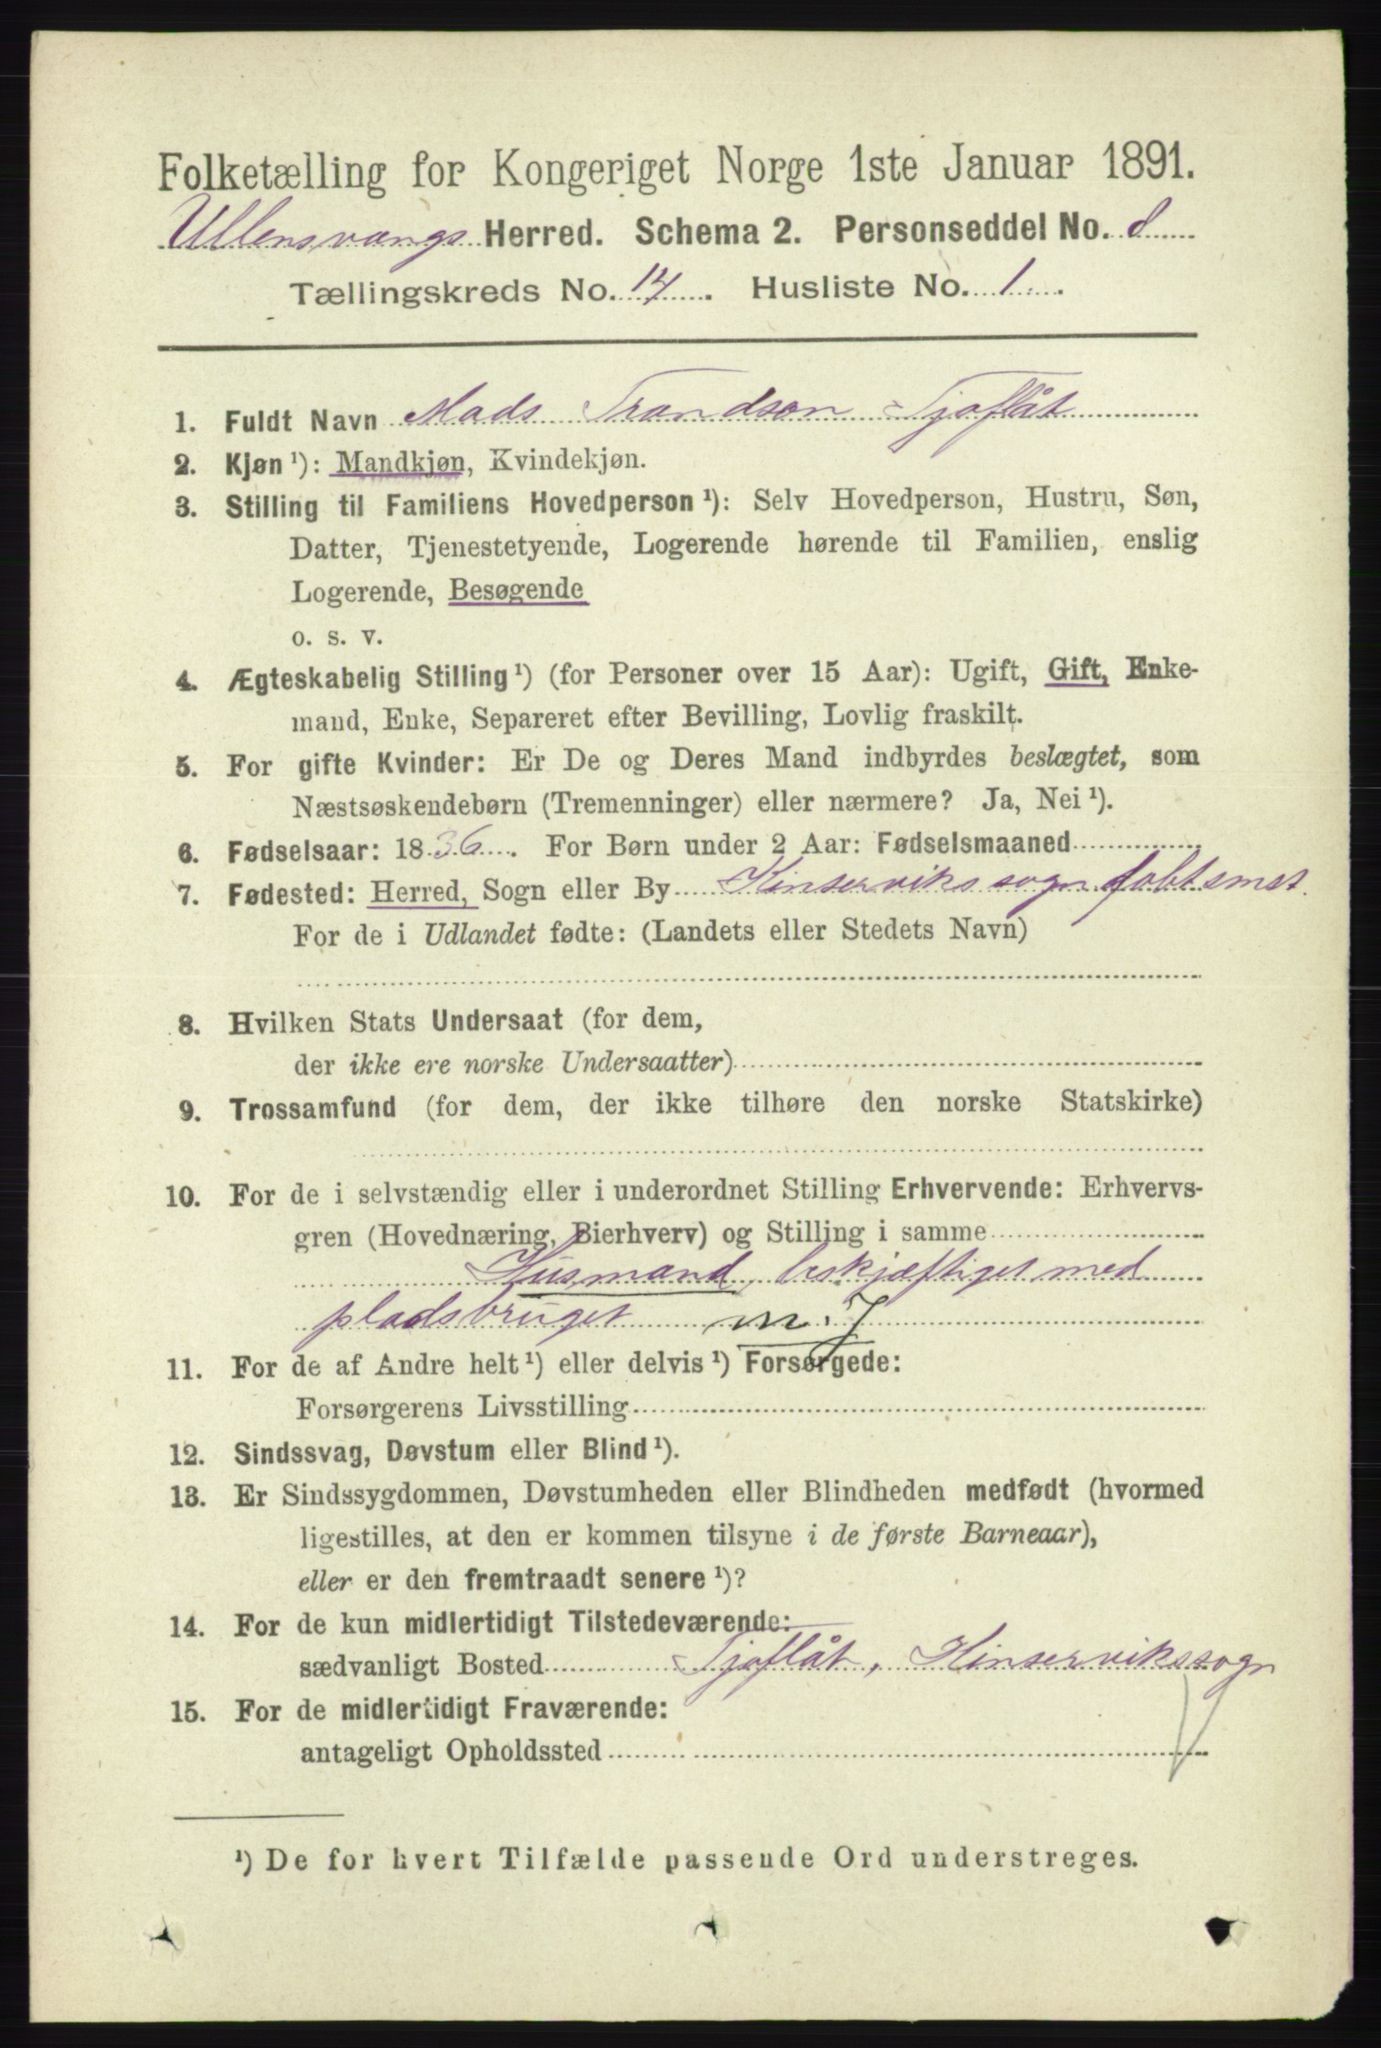 Folketælling for Kongeriget Norge 1ste Januar 1891.
Ullensvangs Herred. Schema 2. Personseddel No. 8
Tællingskreds No. 14. Husliste No. 1
1. Fuldt Navn Mads Trondson Tjoflåt
2. Kjøn ¹): Mandkjøn, Kvindekjøn.
3. Stilling til Familiens Hovedperson ¹): Selv Hovedperson, Hustru, Søn,
Datter, Tjenestetyende, Logerende hørende til Familien, enslig
Logerende, Besøgende
o. s. v.
4. Ægteskabelig Stilling ¹) (for Personer over 15 Aar): Ugift, Gift, Enke-
mand, Enke, Separeret efter Bevilling, Lovlig fraskilt.
5. For gifte Kvinder: Er De og Deres Mand indbyrdes beslægtet, som
Næstsøskendebørn (Tremenninger) eller nærmere? Ja, Nei ¹).
6. Fødselsaar: 1836. For Børn under 2 Aar: Fødselsmaaned
7. Fødested: Herred, Sogn eller By Kinserviks sogn
For de i Udlandet fødte: (Landets eller Stedets Navn)
8. Hvilken Stats Undersaat (for dem,
der ikke ere norske Undersaatter)
9. Trossamfund (for dem, der ikke tilhøre den norske Statskirke)
10. For de i selvstændig eller i underordnet Stilling Erhvervende: Erhvervs-
gren (Hovednæring, Bierhverv) og Stilling i samme
Husmand, beskjæftiget med
pladsbruget m. J
11. For de af Andre helt ¹) eller delvis ¹) Forsørgede:
Forsørgerens Livsstilling
12. Sindssvag, Døvstum eller Blind ¹).
13. Er Sindssygdommen, Døvstumheden eller Blindheden medfødt (hvormed
ligestilles, at den er kommen tilsyne i de første Barneaar),
eller er den fremtraadt senere ¹)?
14. For de kun midlertidigt Tilstedeværende:
sædvanligt Bosted Tjoflåt, Kinservikssogn
15. For de midlertidigt Fraværende:
antageligt Opholdssted
¹) De for hvert Tilfælde passende Ord understreges.